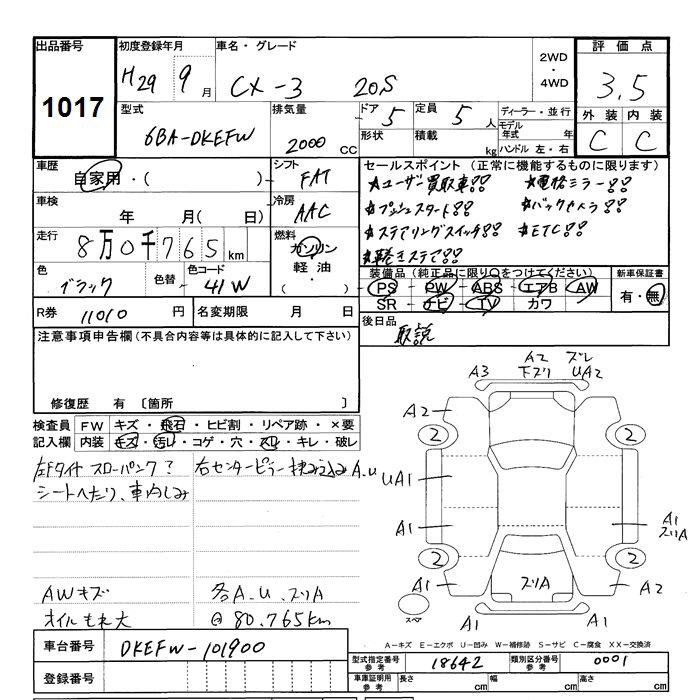 出品番号
1017
初度登録年月
H29 9月
車名・グレード
CX-3 20S
2WD・4WD
評価点
3.5
外装 内装
C C
型式
6BA-DKEFW
排気量
2000 CC
ドア 5
定員 5人
形状
積載 kg
ディーラー・並行
モデル年式 年
ハンドル 左・右
車歴
自家用・( )
シフト
FAT
車検
年 月( 日)
冷房
AAC
走行
8万0千765km
燃料
ガソリン
軽油・
( )
色
ブラック
色替
色コード
41W
R券 11010 円
名変期限 月 日
セールスポイント(正常に機能するものに限ります)
★ユーザー買取車!! ★電格ミラー!!
★プッシュスタート!! ★バックカメラ!!
★ステアリングスイッチ!! ★ETC!!
★革巻きステア!!
装備品(純正品に限り○をつけてください)
PS・PW・ABS・エアB・AW
SR・ナビ・TV・カワ
新車保証書
有・無
後日品
取説
注意事項申告欄(不具合内容等は具体的に記入して下さい)
修復歴 有〔箇所 〕
検査員記入欄
FW キズ・飛石・ヒビ割・リペア跡・×要
内装 キズ・汚れ・コゲ・穴・スレ・キレ・破レ
左Fタイヤ スローパンク?
シートへたり、車内しみ
右センターピラー挟み込みA.U
AWキズ
オイルもれ大
各A.U.ズリA
@80.765km
A3
A2 下ズリ
ズレ UA2
A2
2
2
UA1
A1
A1 ズリA
2
2
A1
ズリA
A2
スペア
A1
A1
A-キズ E-エクボ U-凹み W-補修跡 S-サビ C-腐食 XX-交換済
車台番号 DKEFW-101900
登録番号
型式指定番号参考 18642
類別区分番号参考 0001
車庫証明用参考
長さ cm 幅 cm 高さ cm